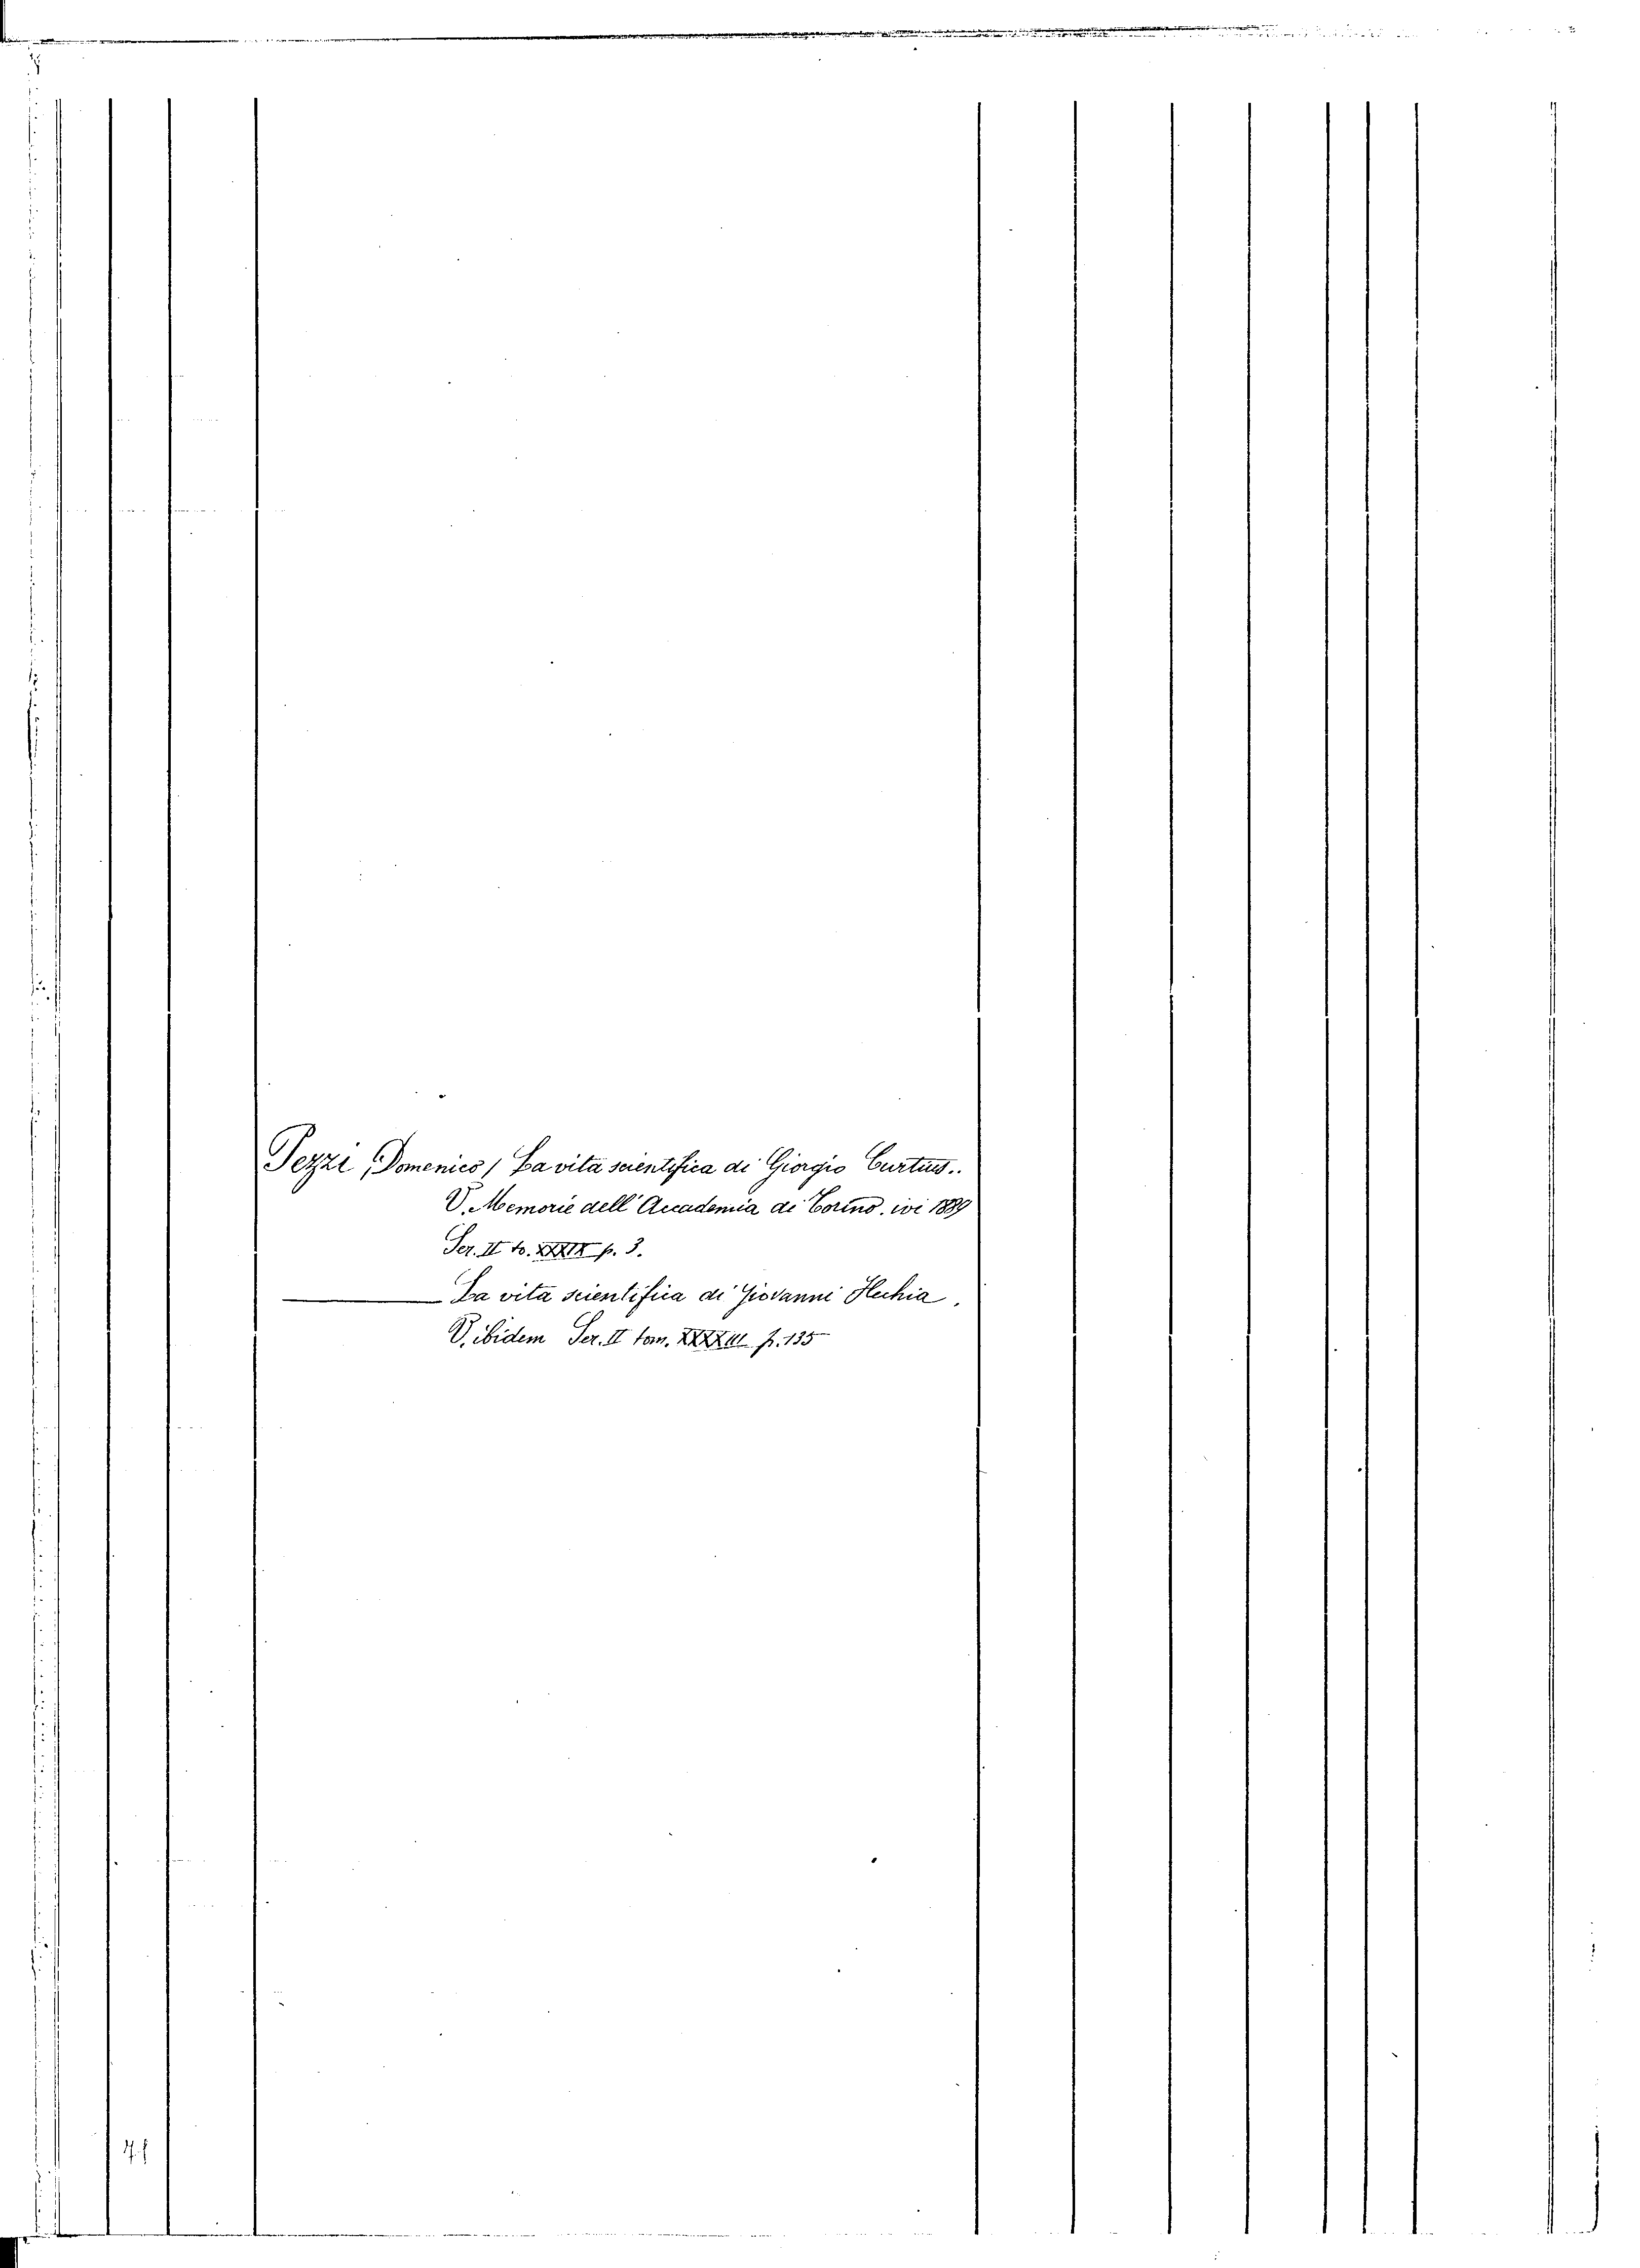 Pezzi, Domenico / La vita scientifica di Giorgio Curtius..
V. Memorie dell' Accademia di Torino. ivi 1889
Ser. II to. XXXIX p. 3.
La vita scientifica di Giovanni Flechia.
V. ibidem Ser. II tom. p. 135